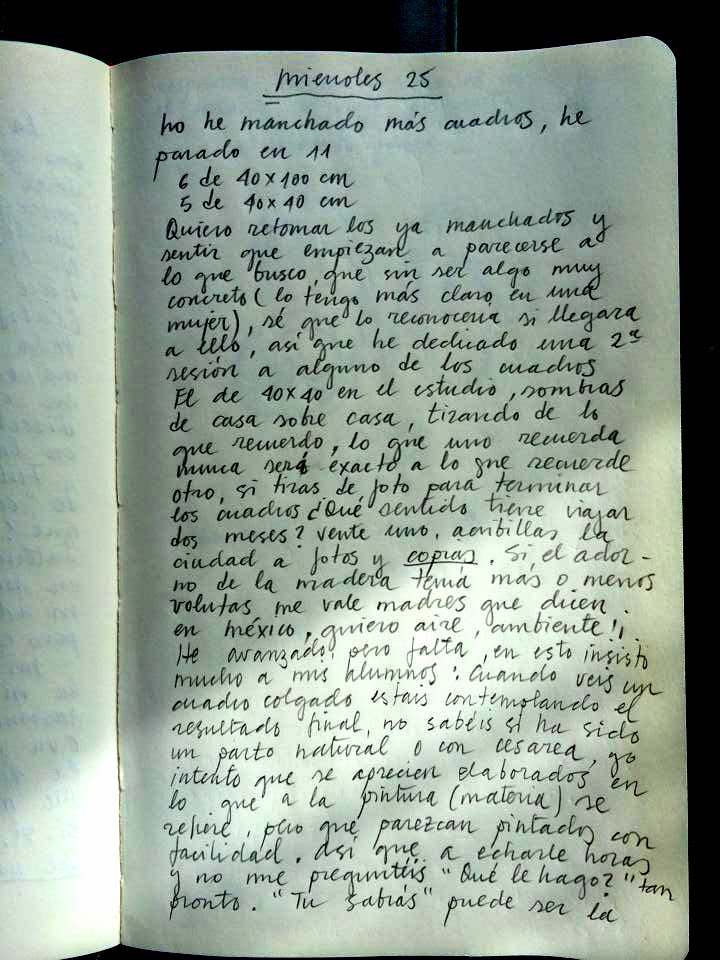 miercoles 25
No he manchado más cuadros, he
parado en 11
6 de 40x100 cm
5 de 40x40 cm
Quiero retomar los ya manchados y
sentir que empiezan a parecerse a
lo que busco, que sin ser algo muy
concreto (lo tengo más claro en una
mujer), sé que lo reconocería si llegara
a ello, así que he dedicado una 2ª
sesión a alguno de los cuadros
El de 40x40 en el estudio, sombras
de casa sobre casa, tirando de lo
que recuerdo, lo que uno recuerda
nunca será exacto a lo que recuerde
otro, si tiras de foto para terminar
los cuadros ¿Qué sentido tiene viajar
dos meses? vente uno, acribillas la
ciudad a fotos y copias. Si el ador-
no de la madera tenía más o menos
volutas me vale madres que dicen
en méxico, quiero aire, ambiente!,
He avanzado, pero falta, en esto insisto
mucho a mis alumnos: Cuando veis un
cuadro colgado estais contemplando el
resultado final, no sabéis si ha sido
un parto natural o con cesarea, yo
intento que se aprecien elaborados en
lo que a la pintura (materia) se
refiere, pero que parezcan pintados con
facilidad. Así que a echarle horas
y no me preguntéis "Qué le hago?" tan
pronto. "Tu sabrás" puede ser la